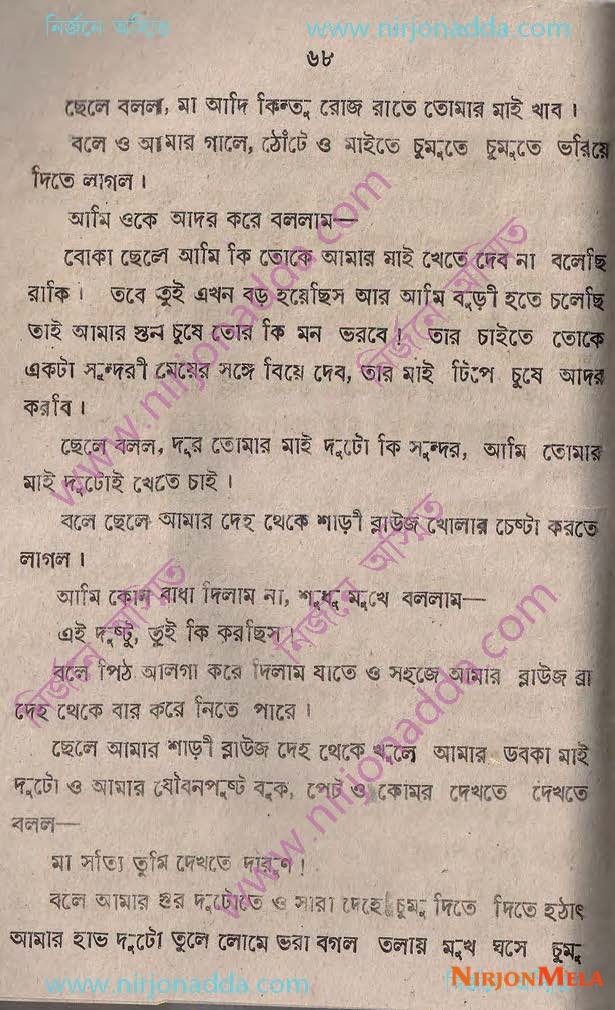 নির্জনে অস্মিত www.nirjonadda.com
৬৮
ছেলে বলল, মা আদি কিন্তু রোজ রাতে তোমার মাই খাব ।
বলে ও আমার গালে, ঠোঁটে ও মাইতে চুমুতে চুমুতে ভরিয়ে
দিতে লাগল ।
আমি ওকে আদর করে বললাম—
বোকা ছেলে আমি কি তোকে আমার মাই খেতে দেব না বলেছি
রাকি । তবে তুই এখন বড় হয়েছিস আর আমি বুড়ী হতে চলেছি
তাই আমার স্তন চুষে তোর কি মন ভরবে ! তার চাইতে তোকে
একটা সুন্দরী মেয়ের সঙ্গে বিয়ে দেব, তার মাই টিপে চুষে আদর
করবি ।
ছেলে বলল, দূর তোমার মাই দুটো কি সুন্দর, আমি তোমার
মাই দুটোই খেতে চাই ।
বলে ছেলে আমার দেহ থেকে শাড়ী ব্লাউজ খোলার চেষ্টা করতে
লাগল ।
আমি কোন বাধা দিলাম না, শুধু মুখে বললাম—
এই দুষ্টু, তুই কি করছিস ।
বলে পিঠ আলগা করে দিলাম যাতে ও সহজে আমার ব্লাউজ ব্রা
দেহ থেকে বার করে নিতে পারে ।
ছেলে আমার শাড়ী ব্লাউজ দেহ থেকে খুলে আমার ডবকা মাই
দুটো ও আমার যৌবনপুষ্ট বুক, পেট ও কোমর দেখতে দেখতে
বলল—
মা সত্যি তুমি দেখতে দারুণ !
বলে আমার স্তর দুটোতে ও সারা দেহে চুমু দিতে দিতে হঠাৎ
আমার হাত দুটো তুলে লোমে ভরা বগল তলায় মুখ ঘসে চুমু
NIRJONMELA
www.nirjonadda.com
www.nirjonadda.com
নির্জনে অস্মিত
নির্জনে অস্মিত
নির্জনে অস্মিত
www.nirjonadda.com
www.nirjonadda.com